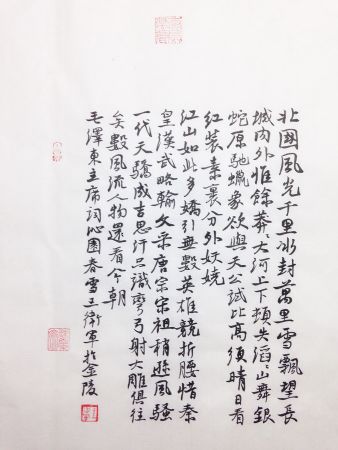 北國風光千里冰封萬里雪飄望長
城内外惟餘莽々大河上下頓失滔々山舞銀
蛇原馳蠟象欲與天公試比高須晴日看
紅裝素裹分外妖嬈
江山如此多嬌引無數英雄競折腰惜秦
皇漢武略輸文采唐宗宋祖稍遜風騷
一代天驕成吉思汗只識彎弓射大雕俱往
矣數風流人物還看今朝
毛澤東主席詞沁園春雪王衛軍於金陵